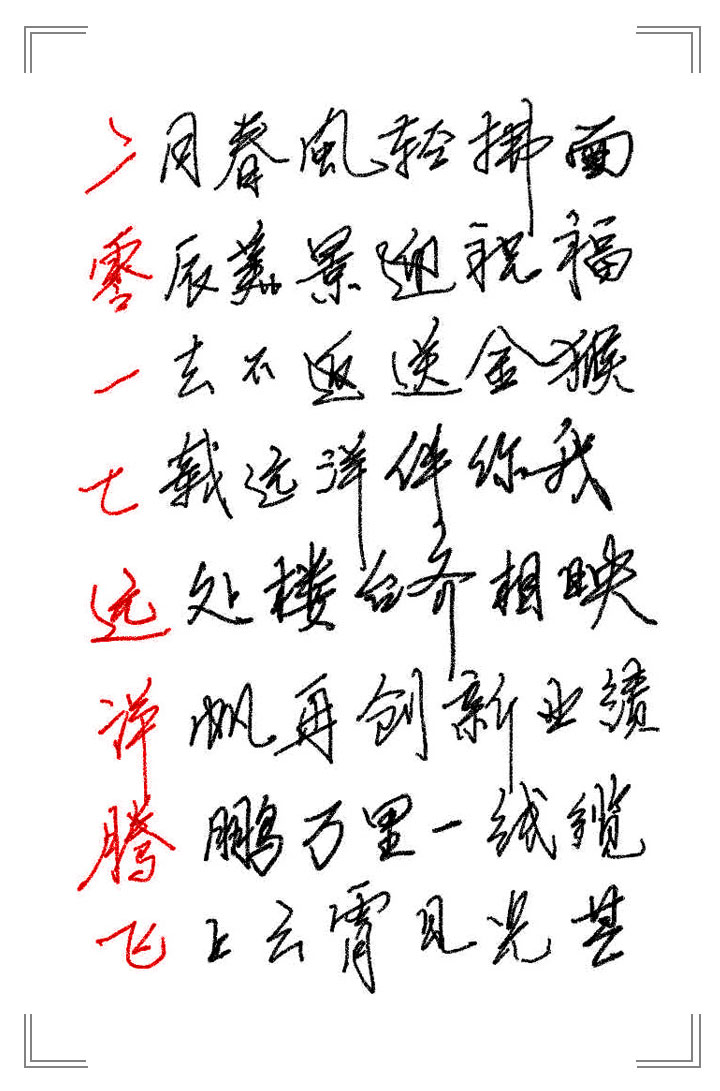 二月春風轻拂面
零辰美景迎祝福
一去不返送金猴
七载远洋伴你我
远处楼台齐相映
洋帆再创新业绩
腾鹏万里一线缆
飞上云霄见光基